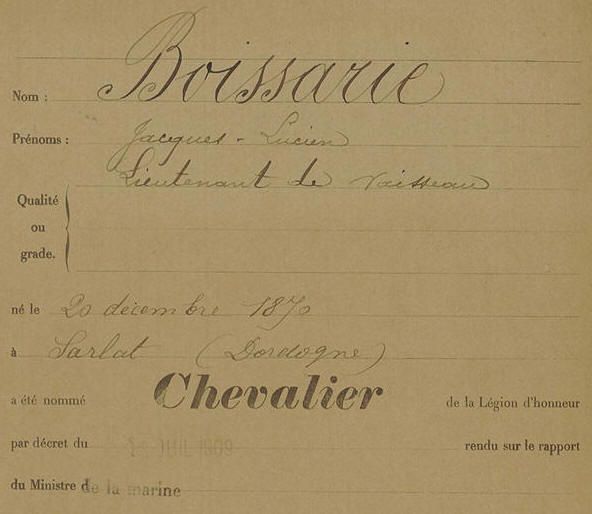 Nom : Boissarie
Prénoms : Jacques-Lucien
Lieutenant de vaisseau
Qualité
ou
grade.
né le 20 décembre 1870
à Sarlat (Dordogne)
a été nommé Chevalier de la Légion d'honneur
par décret du JUIL 1909 rendu sur le rapport
du Ministre de la marine